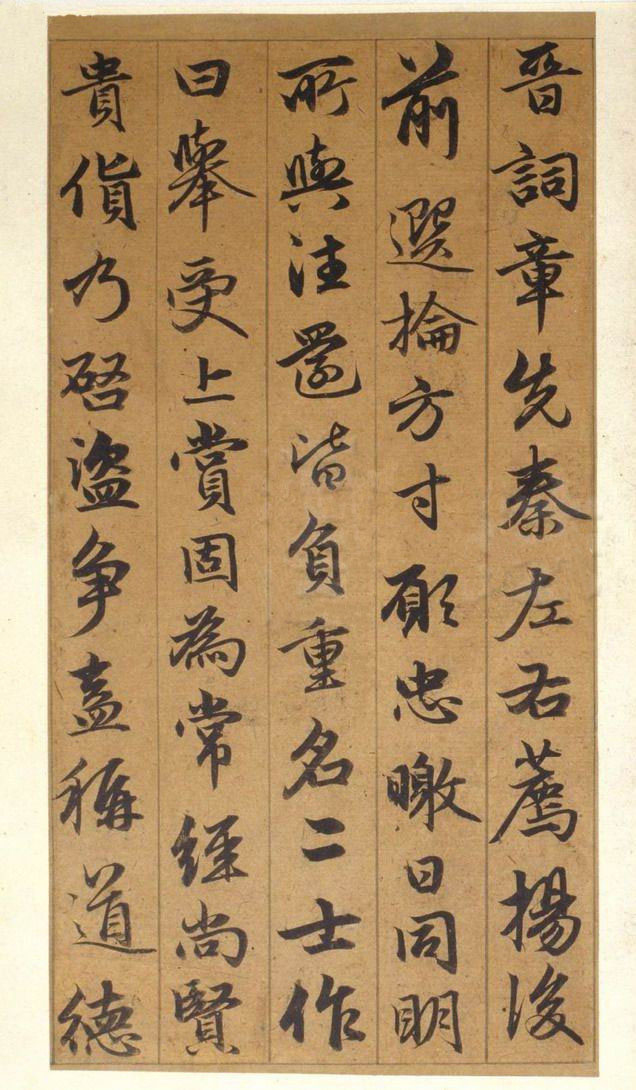 晉詞章先秦左右薦揚後
前選掄方寸願忠曒日同明
所與注選皆負重名二士作
曰舉受上賞固為常經尚賢
貴貨乃啓盜爭盖稱道德